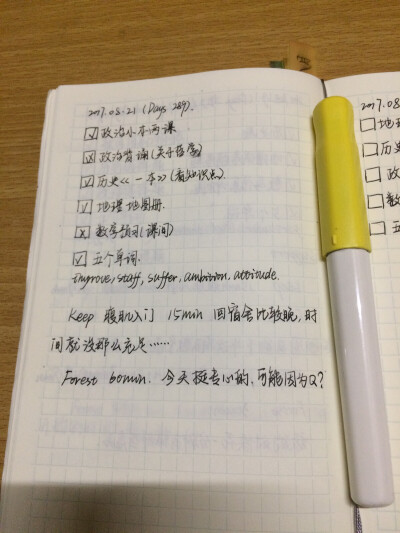 2017.08.21 (Days 289).
☑政治小本两课
☒政治背诵(关于哲学)
☑历史《一本》(看知识点).
☑地理地图册.
☒数学预习(课间)
☑五个单词.
Improve, staff, suffer, ambition, attitude.
Keep 腹肌入门 15min 回宿舍比较晚,时
间就没那么充足……
Forest 60min. 今天挺专心的,可能因为Q?
2017.08
☐地理
☐历史
☐政
☐数
☐五